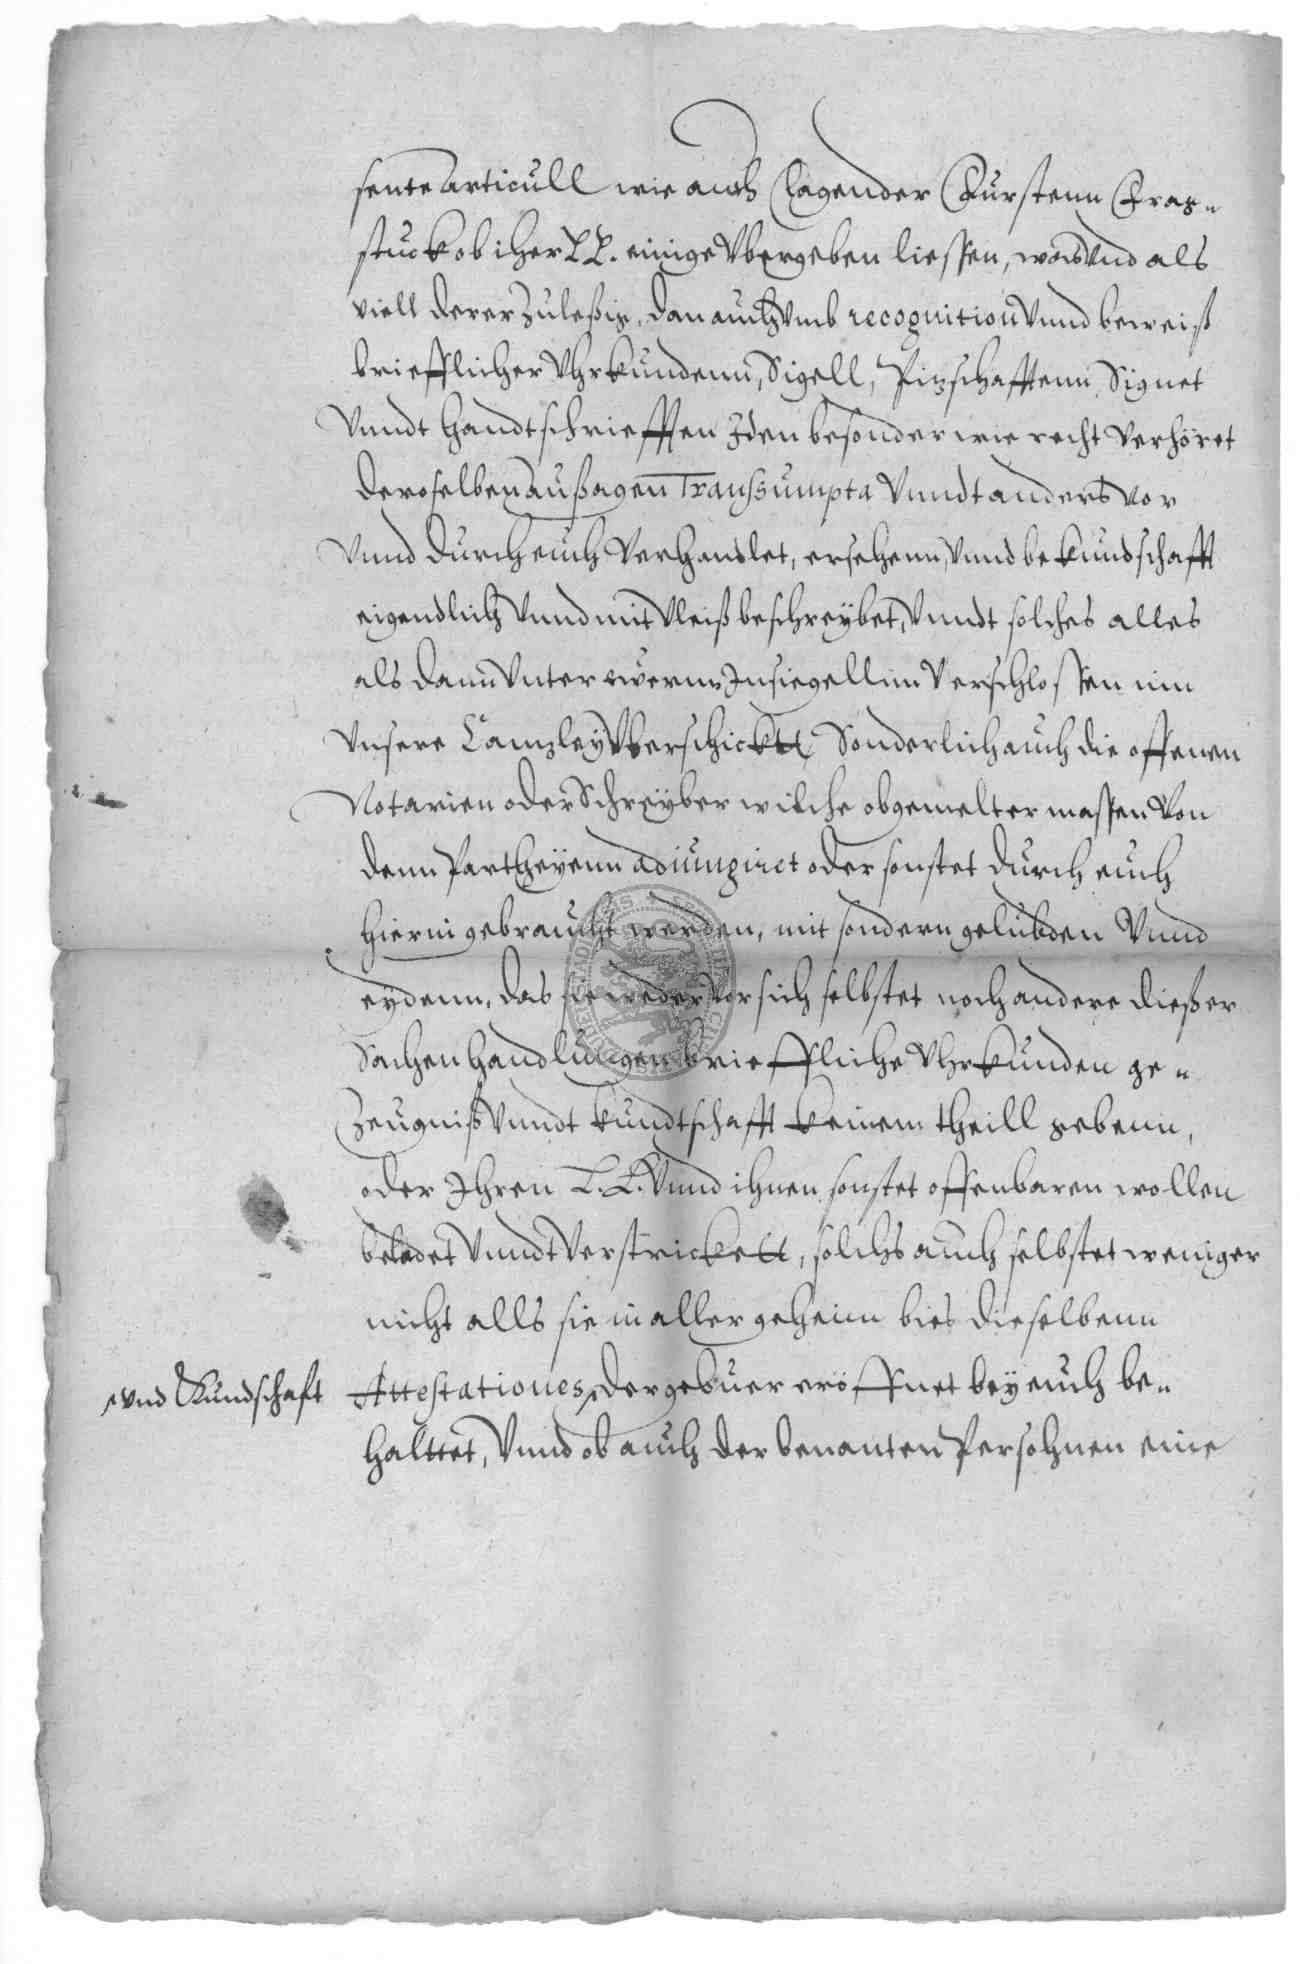 sente Articull wie auch Clagender Fursten Frag-
stuck ob iher L L. einige Vbergeben liessen, was Vnd als
viell derer Zuleßig, Dan auch Vmb recognition Vnnd beweiß
briefflicher Vhrkundenn, Sigell, Pizschafftenn, Signet
Vnndt Handtschriefften Jden besonder wie recht Verhöret
deroselben außagen Transsumpta Vnndt anders vor
Vnnd durch euch Verhandlet, ersehenn, Vnnd bekundschafft
eigendlich Vnnd mit Vleiß beschreybet, Vnndt solches alles
als dann Vnter ewerm Insiegell Verschlossen inn
Vnsere Canzley Vberschickett, Sonderlich auch die offenen
Notarien oder Schreyber wilche obgemelter massen Von
denn Partheyenn adiungiret oder sonstet durch euch
hierin gebraucht werden, mit sondern gelubden Vnnd
eydenn, das sie weder Vor sich selbstet noch andere dießer
Sachen Handlungen brieffliche Vhrkunden ge-
Zeugniß Vnndt Kundtschafft keinem theill gebenn,
oder Ihren L. L. Vnnd ihnen sonstet offenbaren wollen
beladet Vnndt Verstrickett, solchs auch selbstet weniger
nicht alls sie in aller geheim bies dieselbenn
vnd Kundschaft Attestationes der gebuer eröffnet bey euch be-
halttet, Vnnd ob auch der benanten Persohnen eine